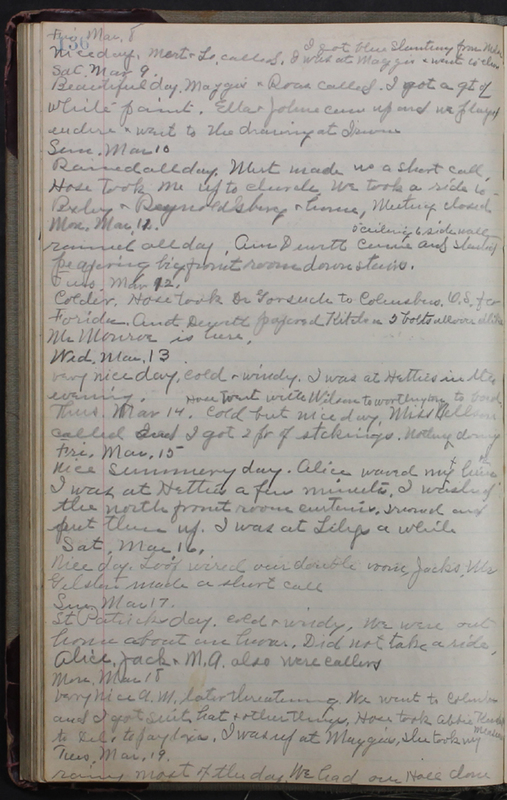 136
Fri, Mar. 8
I got blue Slanting from
Nice day. Mert + Lo. called. I was at Maggies + went to
Sat. Mar 9.
Beautiful day. Maggie + Rosa called. I got a qt of
white paint. Ella + John come up and we played
euchre + went to the drawing at
Sun. Mar 10
Rained all day. Mert made us a short call,
Hose took me up to church. We took a ride to
Bexley + Reynoldsburg + home, Meeting closed
Mon. Mar, 11.
5 ceiling 6 side wall
rained all day. Ann Dewitt come and started
papering big front room down stairs.
Tues. Mar 12.
Colder. Hose took Dr Gorsuch to Columbus. O.S. for
Florida. And Dewitt papered Kitchen 5 bolts all over
Mc Monroe is here,
Wed. Mar, 13
very nice day, cold + windy. I was at Hetties in the
evening.
Hose went with Wilson to worthington to
Thurs. Mar 14. Cold but nice day, Miss
called and I got 2 pr of stckings. Nothing doing
Fri. Mar, 15
Nice Summery day. Alice waved my hair
I was at Hetties a few minutes, I washed
the north front room curtains, ironed and
put them up. I was at Lilys a while
Sat, Mar 16,
Nice day. wired our double room, Jacks. Mr
made a short call
Sun, Mar 17.
St Patricks day. cold + windy. We were out
home about an hour. Did not take a ride,
Alice, Jack + M.A. also were callers
Mon. Mar 18
very nice A.M. later threatening We went to Columbus
and I got suit, hat + other things. Hose took Abbie
to Del. to pay taxes. I was up at Maggies, she took my
measure
Tues. Mar, 19.
rainy most of the day, We had our Hall done